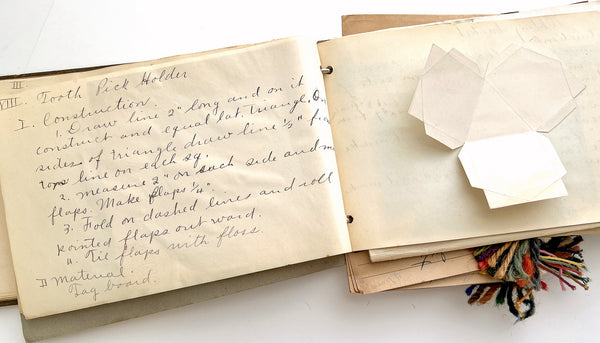 III.
VIII. Tooth Pick Holder
I. Construction.
1. Draw line 2" long and on it
construct and equal lat. triangle. On
sides of triangle draw line ½" from
line on each sq.
2. measure 2" on each side and m
flaps. Make flaps ¼".
3. Fold on dashed lines and roll
pointed flaps outward.
4. Tie flaps with floss.
II Material.
Tag board.